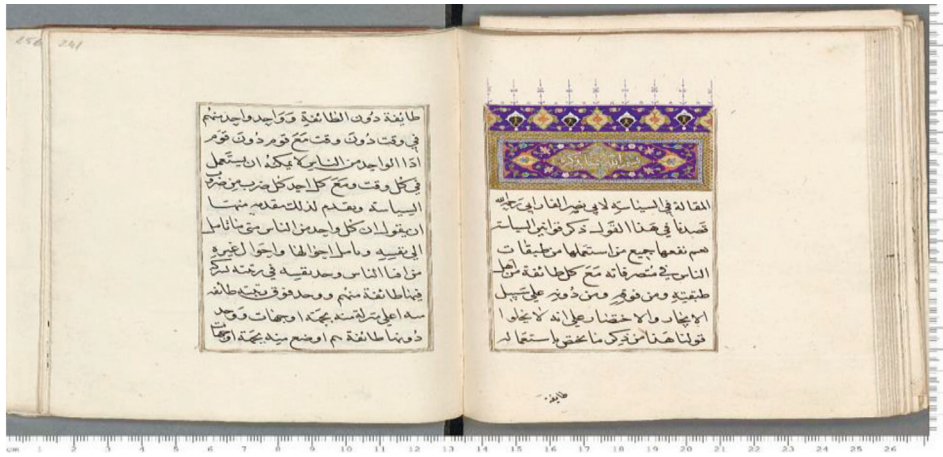 المقالة في السياسة لابي نصر الفارابي رحمه الله
قصدنا في هذا القول ذكر قوانين السياسة
يعم نفعها جميع من استعملها من طبقات
الناس في متصرفاته مع كل طائفة من اهل
طبقته ومن فوقه ومن دونه على سبيل
الايجاز والاختصار على انه لا يخلوا
قولنا هذا من ذكر ما يختص باستعماله
طايفة
241
طايفة دون الطائفة و واحد واحد منهم
في وقت دون وقت مع قوم دون قوم
اذ الواحد من الناس لا يمكنه ان يستعمل
في كل وقت ومع كل احد كل ضرب من ضروب
السياسة ونقدم لذلك مقدمه منها
ان يقول ان كل واحد من الناس متى ما تامل
الى نفسه وتامل احوالها واحوال غيره
من افنا الناس وجد نفسه في رتبة يشركه
فيها طائفة منهم ووجد فوق رتبته طائفه
اعلى منزلة منه بجهة او جهات ووجد
دونها طائفة هم اوضع منه بجهة او جهات
cm 1 2 3 4 5 6 7 8 9 10 11 12 13 14 15 16 17 18 19 20 21 22 23 24 25 26